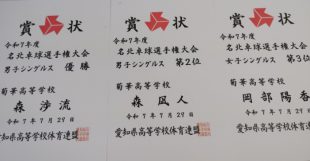 賞状
令和7年度
名北卓球選手権大会
男子シングルス 優勝
菊華高等学校
森 渉流
令和7年7月29日
愛知県高等学校体育連盟
賞状
令和7年度
名北卓球選手権大会
男子シングルス 第2位
菊華高等学校
森 凪人
令和7年7月29日
愛知県高等学校体育連盟
賞状
令和7年度
名北卓球選手権大会
女子シングルス 第3位
菊華高等学校
岡部陽香
令和7年7月29日
愛知県高等学校体育連盟